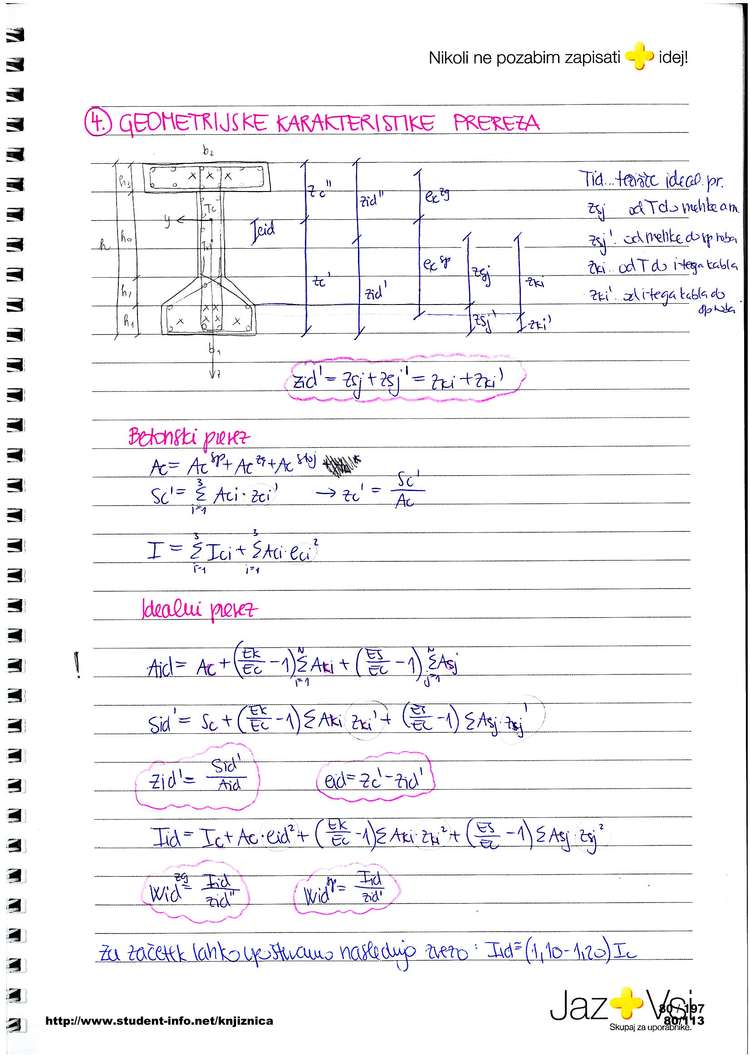 Nikoli ne pozabim zapisati idej!
4. GEOMETRIJSKE KARAKTERISTIKE PREREZA
b₂
h
h₂
h₀
h₁
h₁
Tc
y
b₁
z
eid
zc''
zc'
zid''
zid'
ek^zg
ek^sp
zsj
zsj'
zki
zki'
Tid... težišč ideal. pr.
zsj od T do mehke arm.
zsj' od mehke do sp roba
zki.. od T do i-tega kabla
zki'. od i-tega kabla do
sp roba
zid' = zsj + zsj' = zki + zki'
Betonski prerez
Ac = Ac^sp + Ac^zg + Ac^stoj
Sc' = Σ_{i=1}^{3} Aci · zci' → zc' = Sc'/Ac
I = Σ_{i=1}^{3} Ici + Σ_{i=1}^{3} Aci · eci²
Idealni prerez
! Aid = Ac + (Ek/Ec - 1) Σ_{i=1}^{N} Aki + (Es/Ec - 1) Σ_{j=1}^{N} Asj
Sid' = Sc + (Ek/Ec - 1) Σ Aki zki' + (Es/Ec - 1) Σ Asj · zsj'
zid' = Sid'/Aid eid = zc' - zid'
Iid = Ic + Ac · eid² + (Ek/Ec - 1) Σ Aki · zki² + (Es/Ec - 1) Σ Asj · zsj²
Wid^zg = Iid/zid'' Wid^sp = Iid/zid'
Za začetek lahko upoštevamo naslednjo zvezo : Iid = (1,10 - 1,20) Ic
Jaz Vsi
Skupaj za uporabnike.
80 / 197
80/113
http://www.student-info.net/knjiznica